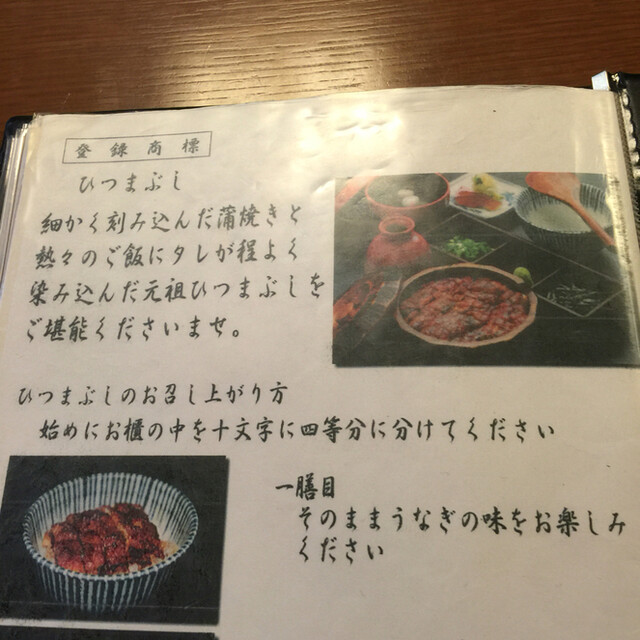 登録商標
ひつまぶし
細かく刻み込んだ蒲焼きと
熱々のご飯にタレが程よく
染み込んだ元祖ひつまぶしを
ご堪能くださいませ。
ひつまぶしのお召し上がり方
始めにお櫃の中を十文字に四等分に分けてください
一膳目
そのままうなぎの味をお楽しみ
ください